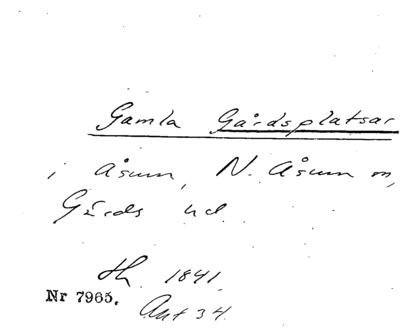 Gamla Gårdsplatsar
i Åsum, N. Åsum sn,
Gärds hd.
1841.
Nr 7965.
Ant 34.